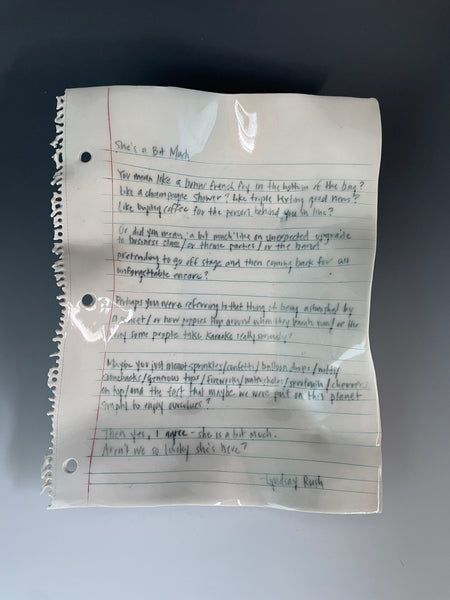 She's a Bit Much
You mean like a bonus french fry in the bottom of the bag?
Like a champagne shower? Like triple texting good news?
Like buying coffee for the person behind you in line?
Or did you mean 'a bit much' like an unexpected upgrade
to business class/or theme parties/or the band
pretending to go off stage and then coming back for an
unforgettable encore?
Perhaps you were referring to that thing of being astonished by
a sunset/or how puppies flop around when they learn run/or the
way some people take karaoke really seriously?
Maybe you just meant sprinkles/confetti/balloon drops/witty
comebacks/generous tips/fireworks/ /serotonin/cherries
on top/and the fact that maybe we were put on this planet
simply to enjoy ourselves?
Then yes, I agree - she is a bit much.
Aren't we so lucky she's here?
-Lyndsay Rush